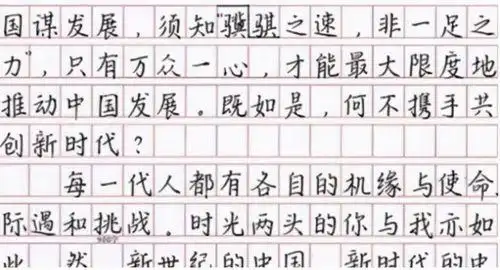 国谋发展，须知"骥骐之速，非一足之
力"，只有万众一心，才能最大限度地
推动中国发展。既如是，何不携手共
创新时代？
每一代人都有各自的机缘与使命
际遇和挑战。时光两头的你与我亦如
此，然，新世纪的中国，新时代的中